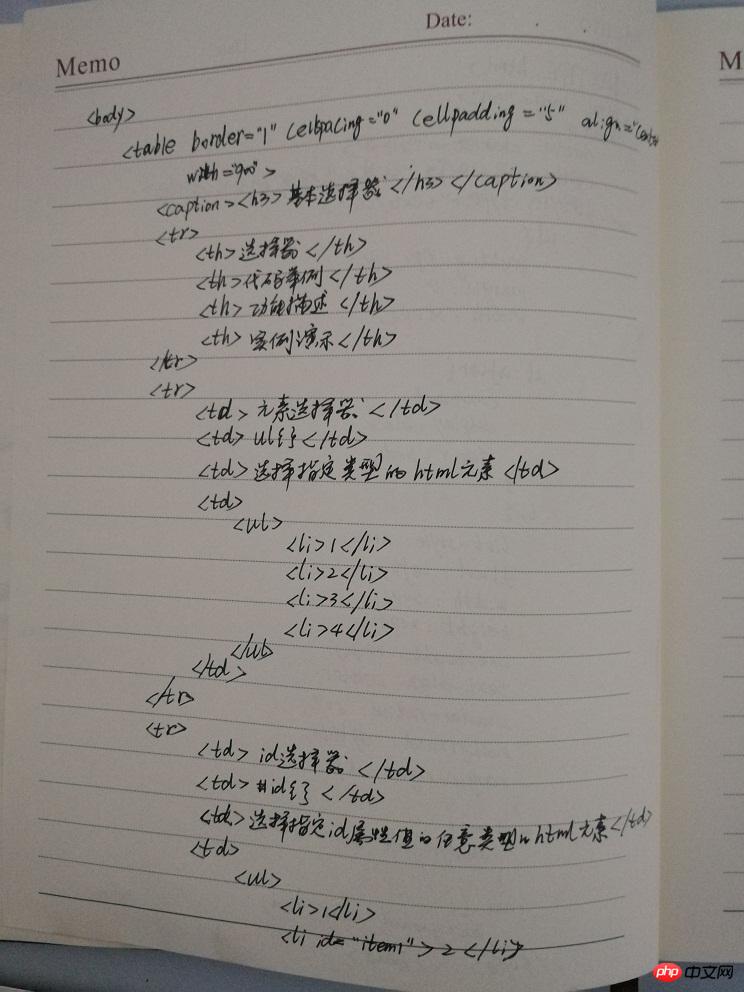 Date:
Memo
M
<body>
<table border="1" cellspacing="0" cellpadding="5" align="center
width="900">
<caption><h3>基本选择器</h3></caption>
<tr>
<th>选择器</th>
<th>代码举例</th>
<th>功能描述</th>
<th>实例演示</th>
</tr>
<tr>
<td>元素选择器</td>
<td>ul{}</td>
<td>选择指定类型的html元素</td>
<td>
<ul>
<li>1</li>
<li>2</li>
<li>3</li>
<li>4</li>
</ul>
</td>
</tr>
<tr>
<td>id选择器</td>
<td>#id{}</td>
<td>选择指定id属性值的任意类型的html元素</td>
<td>
<ul>
<li>1</li>
<li id="item1">2</li>
php 中文网